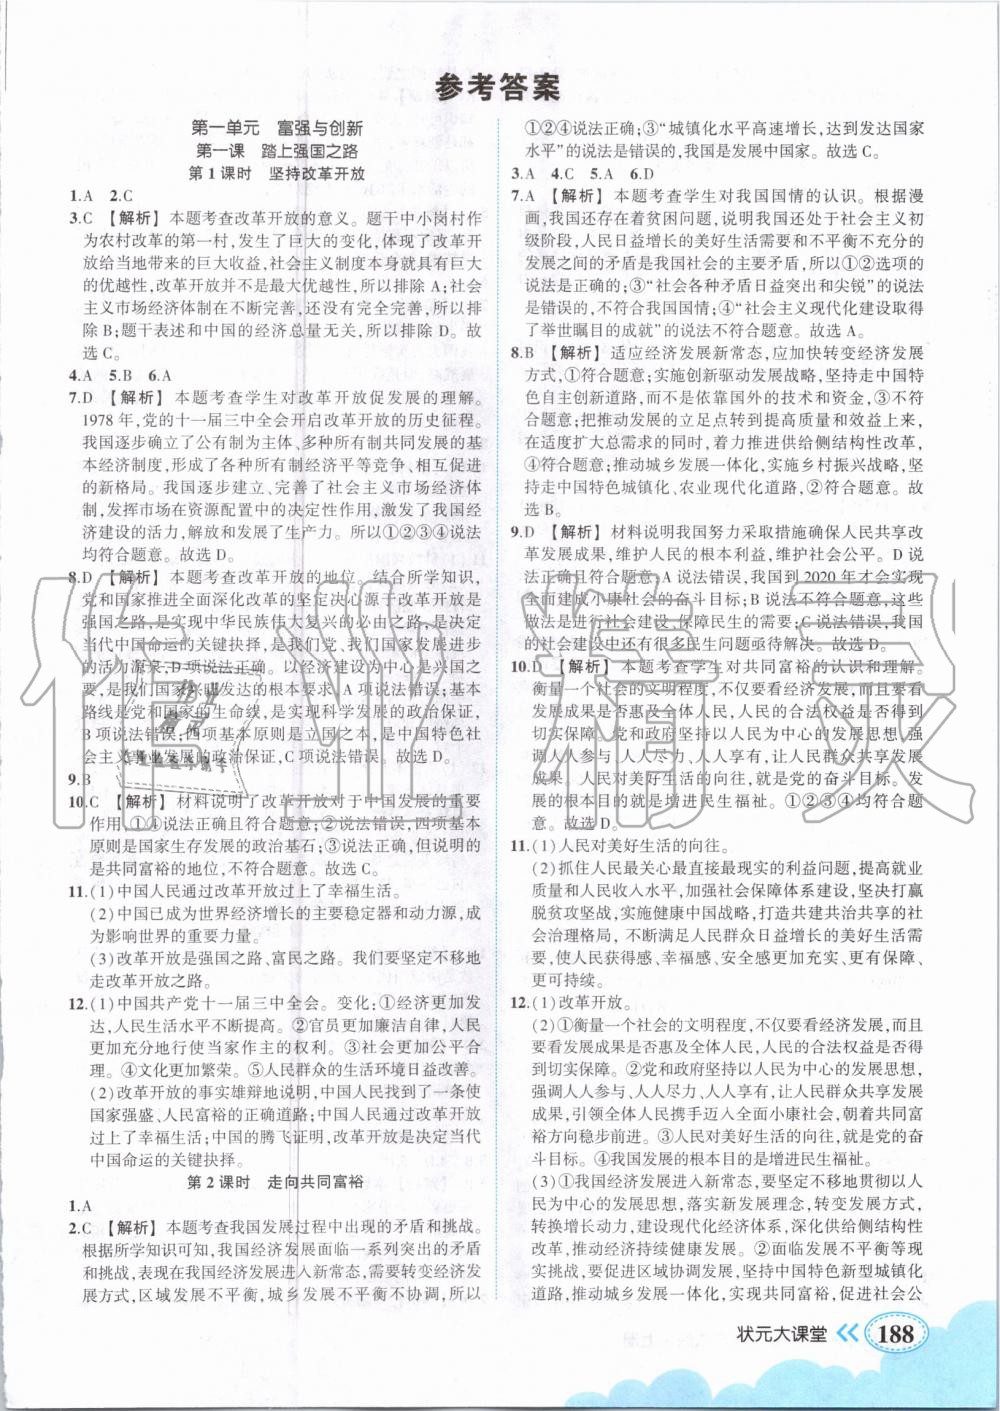 参考答案
第一单元 富强与创新
第一课 踏上强国之路
第1课时 坚持改革开放
1.A 2.C
3.C 【解析】本题考查改革开放的意义。题干中小岗村作
为农村改革的第一村,发生了巨大的变化,体现了改革开
放给当地带来的巨大收益,社会主义制度本身就具有巨大
的优越性,改革开放并不是最大优越性,所以排除A;社会
主义市场经济体制在不断完善,还没有完全完善,所以排
除B;题干表述和中国的经济总量无关,所以排除D。故
选C。
4.A 5.B 6.A
7.D 【解析】本题考查学生对改革开放促发展的理解。
1978年,党的十一届三中全会开启改革开放的历史征程。
我国逐步确立了公有制为主体、多种所有制共同发展的基
本经济制度,形成了各种所有制经济平等竞争、相互促进
的新格局。我国逐步建立、完善了社会主义市场经济体
制,发挥市场在资源配置中的决定性作用,激发了我国经
济建设的活力,解放和发展了生产力。所以①②③④说法
均符合题意。故选D。
8.D 【解析】本题考查改革开放的地位。结合所学知识,
党和国家推进全面深化改革的坚定决心源于改革开放是
强国之路,是实现中华民族伟大复兴的必由之路,是决定
当代中国命运的关键抉择,是我们党、我们国家发展进步
的活力源泉,D项说法正确。以经济建设为中心是兴国之
要,是我们国家兴旺发达的根本要求,A项说法错误;基本
路线是党和国家的生命线,是实现科学发展的政治保证,
B项说法错误;四项基本原则是立国之本,是中国特色社
会主义事业发展的政治保证,C项说法错误。故选D。
9.B
10.C 【解析】材料说明了改革开放对于中国发展的重要
作用,①④说法正确且符合题意;②说法错误,四项基本
原则是国家生存发展的政治基石;③说法正确,但说的
是共同富裕的地位,不符合题意。故选C。
11.(1)中国人民通过改革开放过上了幸福生活。
(2)中国已成为世界经济增长的主要稳定器和动力源,成
为影响世界的重要力量。
(3)改革开放是强国之路、富民之路。我们要坚定不移地
走改革开放之路。
12.(1)中国共产党十一届三中全会。变化:①经济更加发
达,人民生活水平不断提高。②官员更加廉洁自律,人民
更加充分地行使当家作主的权利。③社会更加公平合
理。④文化更加繁荣。⑤人民群众的生活环境日益改善。
(2)改革开放的事实雄辩地说明,中国人民找到了一条使
国家强盛、人民富裕的正确道路;中国人民通过改革开放
过上了幸福生活;中国的腾飞证明,改革开放是决定当代
中国命运的关键抉择。
第2课时 走向共同富裕
1.A
2.C 【解析】本题考查我国发展过程中出现的矛盾和挑战。
根据所学知识可知,我国经济发展面临一系列突出的矛盾
和挑战,表现在我国经济发展进入新常态,需要转变经济发
展方式,区域发展不平衡,城乡发展不平衡不协调,所以
①②④说法正确;③“城镇化水平高速增长,达到发达国家
水平”的说法是错误的,我国是发展中国家。故选C。
3.A 4.C 5.A 6.D
7.A 【解析】本题考查学生对我国国情的认识。根据漫
画,我国还存在着贫困问题,说明我国还处于社会主义初
级阶段,人民日益增长的美好生活需要和不平衡不充分的
发展之间的矛盾是我国社会的主要矛盾,所以①②选项的
说法是正确的;③“社会各种矛盾日益突出和尖锐”的说法
是错误的,不符合我国国情;④“社会主义现代化建设取得
了举世瞩目的成就”的说法不符合题意。故选A。
8.B 【解析】适应经济发展新常态,应加快转变经济发展
方式,①符合题意;实施创新驱动发展战略,坚持走中国特
色自主创新道路,而不是依靠国外的技术和资金,③不符
合题意;把推动发展的立足点转到提高质量和效益上来,
在适度扩大总需求的同时,着力推进供给侧结构性改革,
④符合题意;推动城乡发展一体化,实施乡村振兴战略,坚
持走中国特色城镇化、农业现代化道路,②符合题意。故
选B。
9.D 【解析】材料说明我国努力采取措施确保人民共享改
革发展成果,维护人民的根本利益,维护社会公平。D说
法正确且符合题意;A说法错误,我国到2020年才会实现
全面建成小康社会的奋斗目标;B说法不符合题意,这些
做法是进行社会建设,保障民生的需要;C说法错误,我国
的社会建设中还有很多民生方面亟待解决。故选D。
10.D 【解析】本题考查学生对共同富裕的认识和理解。
衡量一个社会的文明程度,不仅要看经济发展,而且要看
发展成果是否惠及全体人民,人民的合法权益是否得到
切实保障。党和政府坚持以人民为中心的发展思想,强
调人人参与、人人尽力、人人享有,让人民群众共享发展
成果。人民对美好生活的向往,就是党的奋斗目标。发
展的根本目的就是增进民生福祉。①②③④均符合题
意。故选D。
11.(1)人民对美好生活的向往。
(2)抓住人民最关心最直接最现实的利益问题,提高就业
质量和人民收入水平,加强社会保障体系建设,坚决打赢
脱贫攻坚战,实施健康中国战略,打造共建共治共享的社
会治理格局,不断满足人民群众日益增长的美好生活需
要,使人民获得感、幸福感、安全感更加充实、更有保障、
更可持续。
12.(1)改革开放。
(2)①衡量一个社会的文明程度,不仅要看经济发展,而且
要看发展成果是否惠及全体人民,人民的合法权益是否得
到切实保障。②党和政府坚持以人民为中心的发展思想,
强调人人参与、人人尽力、人人享有,让人民群众共享发展
成果,引领全体人民携手迈入全面小康社会,朝着共同富
裕方向稳步前进。③人民对美好生活的向往,就是党的奋
斗目标。④我国发展的根本目的就是增进民生福祉。
(3)①我国经济发展进入新常态,要坚定不移地贯彻以人
民为中心的发展思想,落实新发展理念,转变发展方式,
转换增长动力,建设现代化经济体系,深化供给侧结构性
改革,推动经济持续健康发展。②面临发展不平衡等现
实问题,要促进区域协调发展,坚持中国特色新型城镇化
道路,推动城乡发展一体化,实现共同富裕,促进社会公
状元大课堂 188
作业精灵